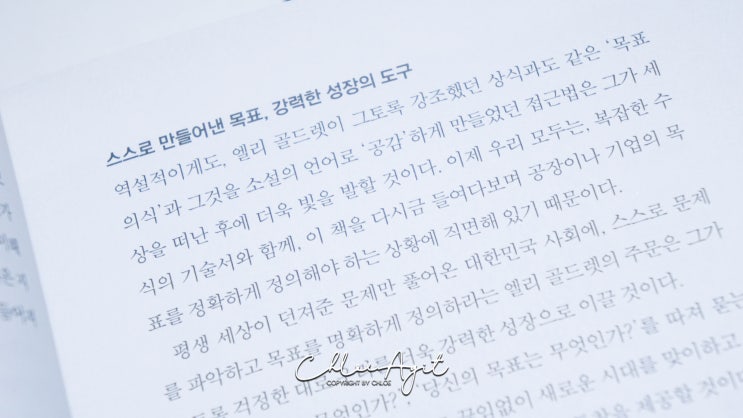 스스로 만들어낸 목표, 강력한 성장의 도구
역설적이게도, 엘리 골드렛이 그토록 강조했던 상식과도 같은 ‘목표
의식’과 그것을 소설의 언어로 ‘공감’하게 만들었던 접근법은 그가 세
상을 떠난 후에 더욱 빛을 발할 것이다. 이제 우리 모두는, 복잡한 수
식의 기술서와 함께, 이 책을 다시금 들여다보며 공장이나 기업의 목
표를 정확하게 정의해야 하는 상황에 직면해 있기 때문이다.
평생 세상이 던져준 문제만 풀어온 대한민국 사회에, 스스로 문제
를 파악하고 목표를 명확하게 정의하라는 엘리 골드렛의 주문은 그가
걱정한 더욱 강력한 성장으로 이끌 것이다.
무엇인가?’ ‘당신의 목표는 무엇인가?’를 따져 묻는
끊임없이 새로운 시대를 맞이하고
제공할 것이다
Chloe Azit
COPYRIGHT BY CHLOE